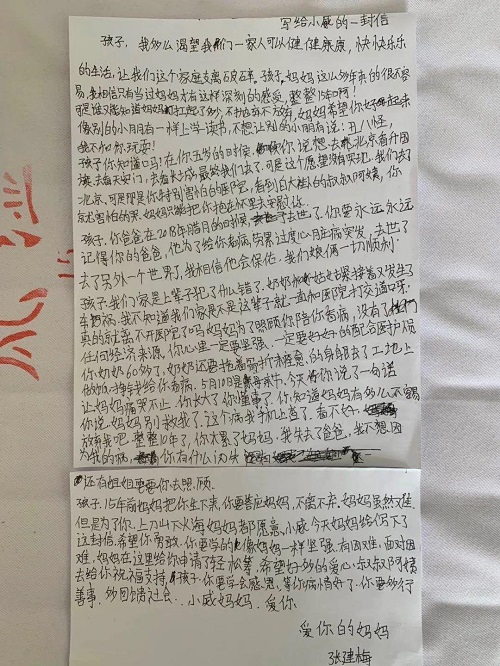 写给小威的一封信
孩子，我多么渴望我们一家人可以健健康康，快快乐乐
的生活，让我们这个家庭支离破碎。孩子，妈妈这么多年来的很不容
易，我相信只有当过妈妈才有这样深刻的感受，整整15年啊！
可是谁又能知道妈妈扛起了多少，不抛弃不放弃，妈妈希望你好起来
像别的小朋友一样上学读书，不想让别的小朋友说：丑八怪，
我不和你玩耍！
孩子你知道吗！在你五岁的时候，你说想去北京看升国
旗，去看天安门，去看长城最终我们去了，可是这个愿望没有实现，我们去了
北京，可是那是你特别害怕的医院，看到白大褂的叔叔阿姨，你
就害怕的哭，妈妈只能把你抱在怀里去安慰你。
孩子，你爸爸在2018年腊月日的时候，去世了，你要永远永远
记得你的爸爸，他为了给你看病，劳累过度心肌梗突发，去世了
去了另外一个世界了，我相信他会保佑，我们娘俩一切顺利
孩子我们家是上辈子犯了什么错了，奶奶和姑姑紧接着又发生了
车祸，我不知道我们家是不是这辈子就一直和医院打交道呀。
真的就离不开医院了吗 妈妈为了照顾你陪你看病，没有了
任何经济来源，你心里一定要坚强，一定要好好的配合医护人员
你奶奶60多了，奶奶还要拖着骨折 的身躯去了工地上
给你挣钱给你看病，5月10日是母亲节，今天你说了一句话
让妈妈痛哭不止，你长大了你懂事了，你知道妈妈有多么不容易
你说妈妈别救我了，这个病我手机上查了，看不好，
放弃我吧，整整10年了，你太累了妈妈，我失去了爸爸，我不想因
为我的病， 你有什么闪失
还有姐姐更要你去照顾
孩子，15年前妈妈把你生下来，你要答应妈妈，不离不弃，妈妈虽然难
但是为了你，上刀山下火海妈妈都愿意，小威今天妈妈给你写下了
这封信，希望你勇敢，你要学的像妈妈一样坚强，有困难，面对困
难，妈妈在这里给你申请了轻松筹，希望好多的爱心叔叔阿姨
去给你祝福支持，孩子，你要学会感恩，等你病情好了，你要多行
善事，多回馈社会， 小威妈妈爱你
爱你的妈妈
张建梅